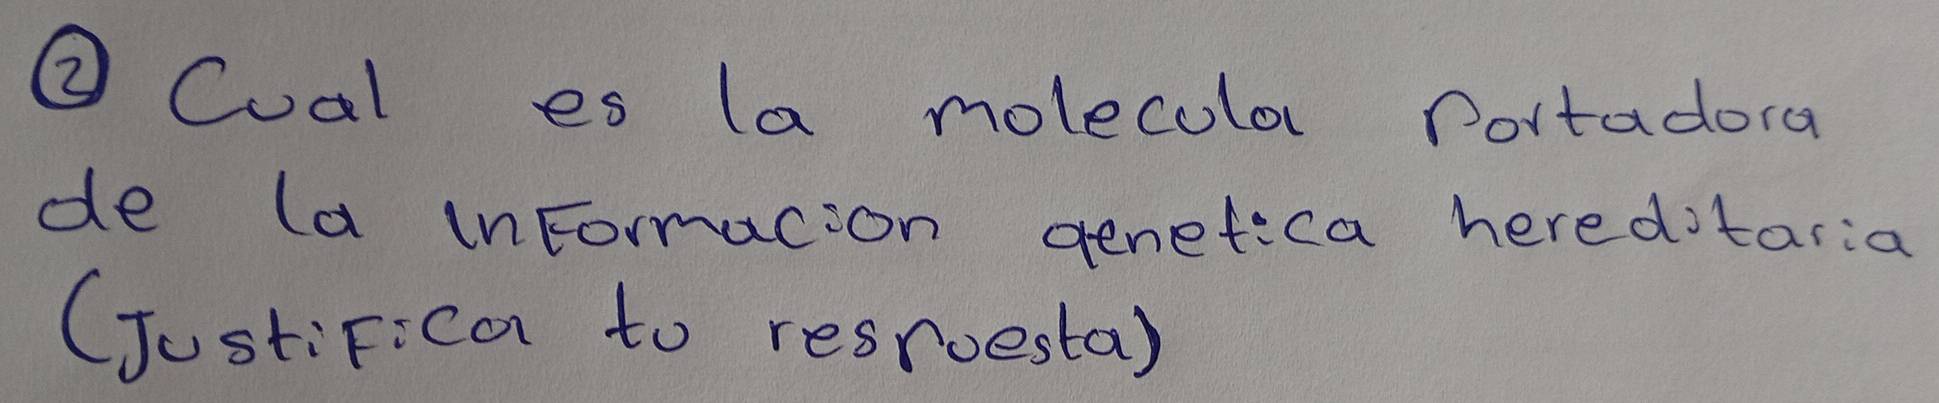 ② Cual es la molecula portadora
de la informacion genetica hereditaria
(Justifica tu respuesta)